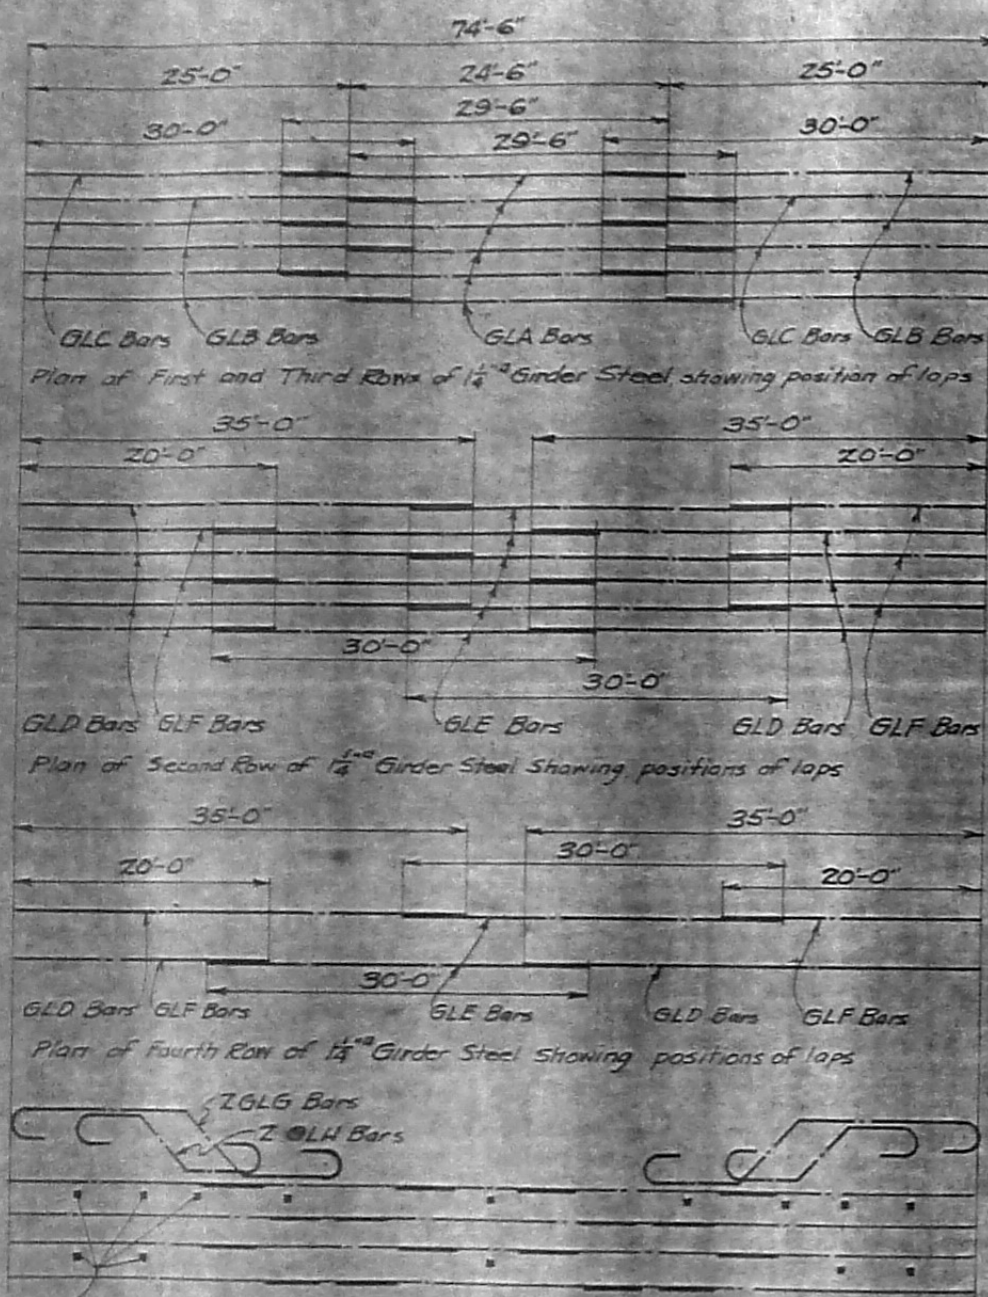 74'-6"
25'-0" 24'-6" 25'-0"
29'-6"
30'-0" 29'-6" 30'-0"
GLC Bars GLB Bars GLA Bars GLC Bars GLB Bars
Plan of First and Third Rows of 1¼"⌑ Girder Steel showing position of laps
35'-0" 35'-0"
20'-0" 20'-0"
30'-0"
30'-0"
GLD Bars GLF Bars GLE Bars GLD Bars GLF Bars
Plan of Second Row of 1¼"⌑ Girder Steel Showing positions of laps
35'-0" 35'-0"
30'-0"
20'-0" 20'-0"
30'-0"
GLD Bars GLF Bars GLE Bars GLD Bars GLF Bars
Plan of Fourth Row of 1¼"⌑ Girder Steel Showing positions of laps
2 GLG Bars
2 GLH Bars